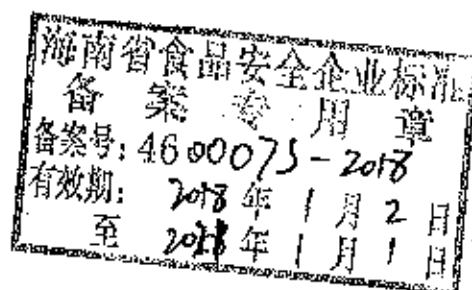 海南省食品安全企业标准
备案专用章
备案号:4600075-2018
有效期:2018年1月2日
至2021年1月1日